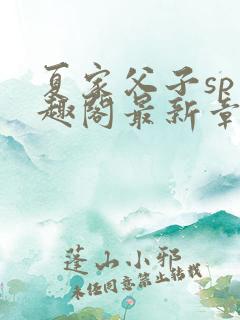 夏家父子sp
趣阁最新章
蓬山小邪
未经同意禁止转载